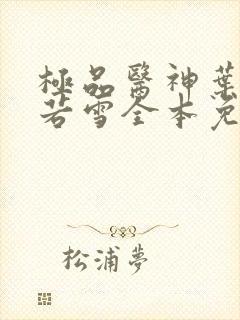 極品醫神葉
若雪全本免
松浦夢